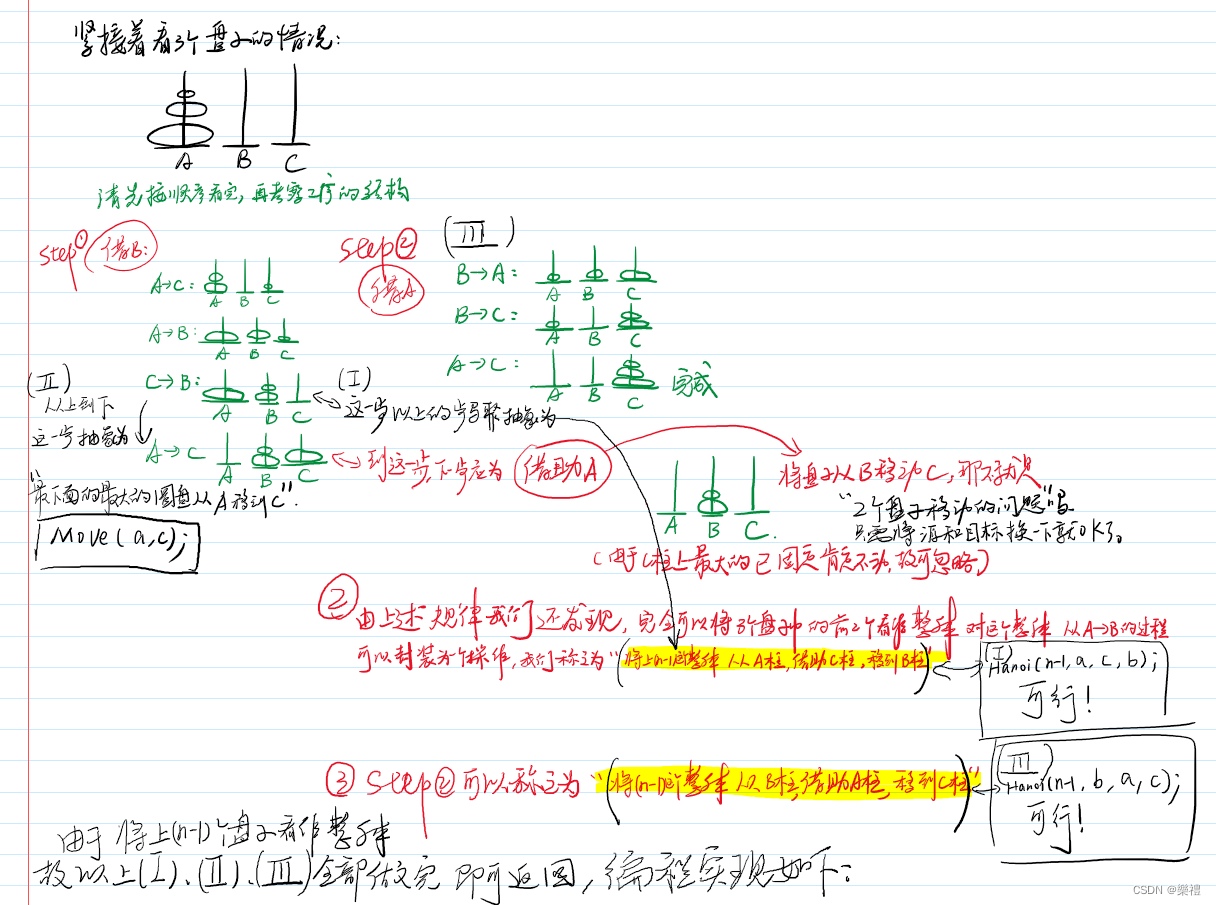 紧接着看3个盘子的情况:
A B C
请先按顺序看完,再考虑工序的结构
Step①
借B:
A→C:
A B C
A→B:
A B C
C→B:
A B C
A→C
A B C
(Ⅱ)
从上到下
这一步抽象为
"最下面的最大的圆盘从A移到C".
Move(a,c);
(Ⅰ)
这一步以上的步骤抽象为
Step②
借A
(Ⅲ)
B→A:
A B C
B→C:
A B C
A→C:
A B C
完成
到这一步,下步应为
借助A
将盘子从B移动C,那不就是
"2个盘子移动的问题"吗
只需将源和目标换一下就OK了。
A B C.
(由于C柱上最大的已固定肯定不动,故可忽略)
② 由上述规律我们还发现,完全可以将3个盘子中的前2个看作整体 对这个整体 从A→B的过程
可以封装为一个操作,我们称之为"(将上(n-1)的整体 从A柱,借助C柱,移到B柱")
(Ⅰ)
Hanoi(n-1,a,c,b);
可行!
③ Step②可以称之为"(将(n-1)的整体 从B柱,借助A柱,移到C柱)"
(Ⅲ)
Hanoi(n-1,b,a,c);
可行!
由于将上(n-1)个盘子看作整体
故以上(Ⅰ)、(Ⅱ)、(Ⅲ)全部做完 即可返回,编程实现如下:
CSDN @樂禮